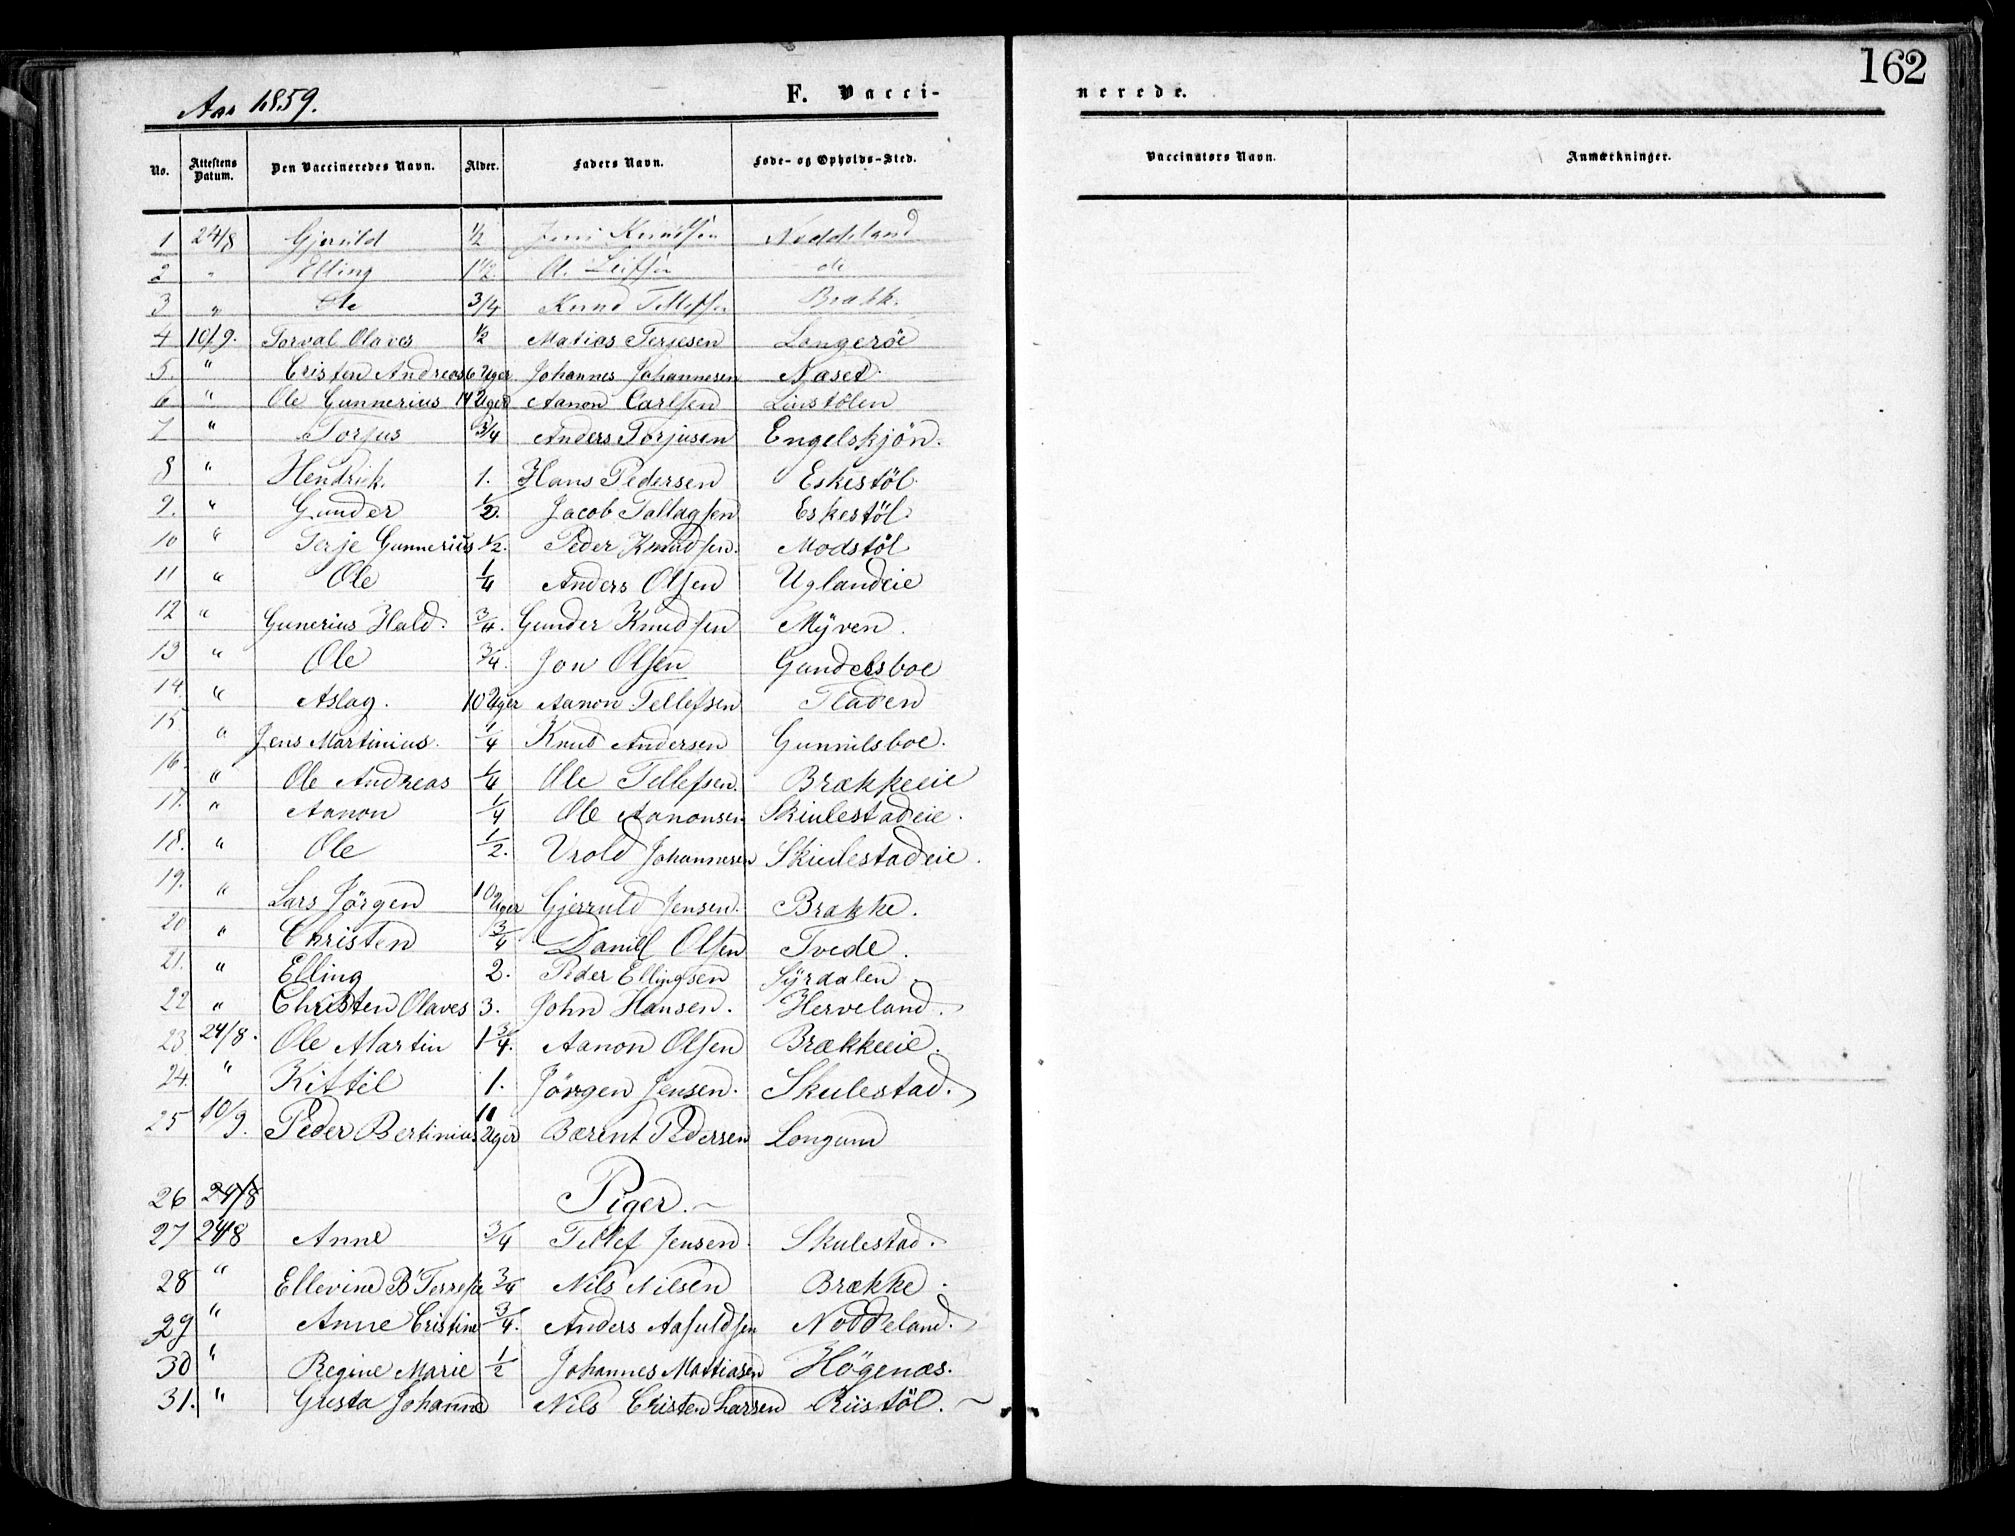 162
Aar 1859. F. Vacci- nerede.
No. Attestens Datum. Den Vaccineredes Navn. Alder. Faders Navn. Føde- og Opholds-Sted. Vaccinators Navn. Anmærkninger.
1 24/8 Gjeruld 1/2 Jens Knudsen Noddeland
2 " Elling 1 1/2 O. Leifsen do
3 " Ole 3/4 Knud Tellefsen Brække
4 10/9. Torval Olaves 1/2 Matias Terjesen Langerøe
5. " Cristen Andreas 6 Uger Johannes Johannesen Næset.
6 " Ole Gunnerius 14 Uger Aanon Carlsen Linstölen
7 " Torjus 3/4 Anders Torjusen Engelskjön.
8 " Hendrik. 1. Hans Pedersen Eskestöl.
9. " Gunder 1/2. Jacob Tallagsen Eskestöl
10 " Terje Gunnerius 1/2. Peder Knudsen. Modstöl
11 " Ole 1/4 Anders Olsen Uglandeie
12 " Gunerius Hald. 3/4. Gunder Knudsen Mÿven.
13 " Ole 3/4. Jon Olsen Gundelsboe
14. " Aslag. 10 Uger Aanon Tellefsen Fladen
15 " Jens Martinius. 1/4 Knud Andersen Gunnilsboe.
16. " Ole Andreas 1/4 Ole Tellefsen. Brækkeeie
17. " Aanon 1/4 Ole Aanonsen Skiulestadeie.
18. " Ole 1/2. Vrold Johannesen Skiulestadeie.
19. " Lars Jörgen 10 Uger Gjerruld Jensen. Brække.
20 " Christen 3/4 Daniel Olsen Tvede.
21. " Elling 2. Peder Ellingsen Sÿrdalen
22 " Christen Olaves 3. John Hansen. Herveland.
23 24/8. Ole Martin 1 3/4. Aanon Olsen Brækkeeie.
24. " Kittil 1. Jörgen Jensen. Skulestad.
25 10/9. Peder Bertinius 11 Uger Bærent Pedersen Longum
26 24/8 Piger.
27 24/8 Anne 3/4 Tellef Jensen. Skulestad.
28 " Ellevine B Terresia 3/4 Nils Nilsen Brække.
29 " Anne Cristine 3/4. Anders Aasuldsen Noddeland.
30 " Regine Marie 1/2 Johannes Mattiasen Högenæs.
31. " Gusta Johanne Nils Cristen Larsen Riistöl.